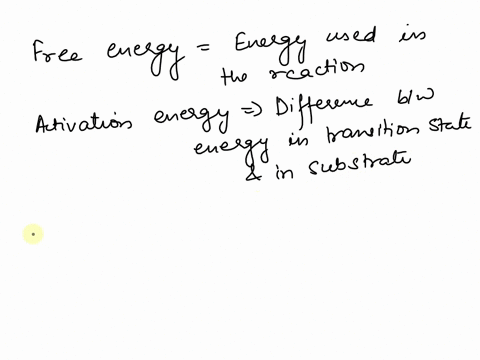 Free energy = Energy used in
the reaction
Activation energy => Difference b/w
energy in transition state
& in substrate